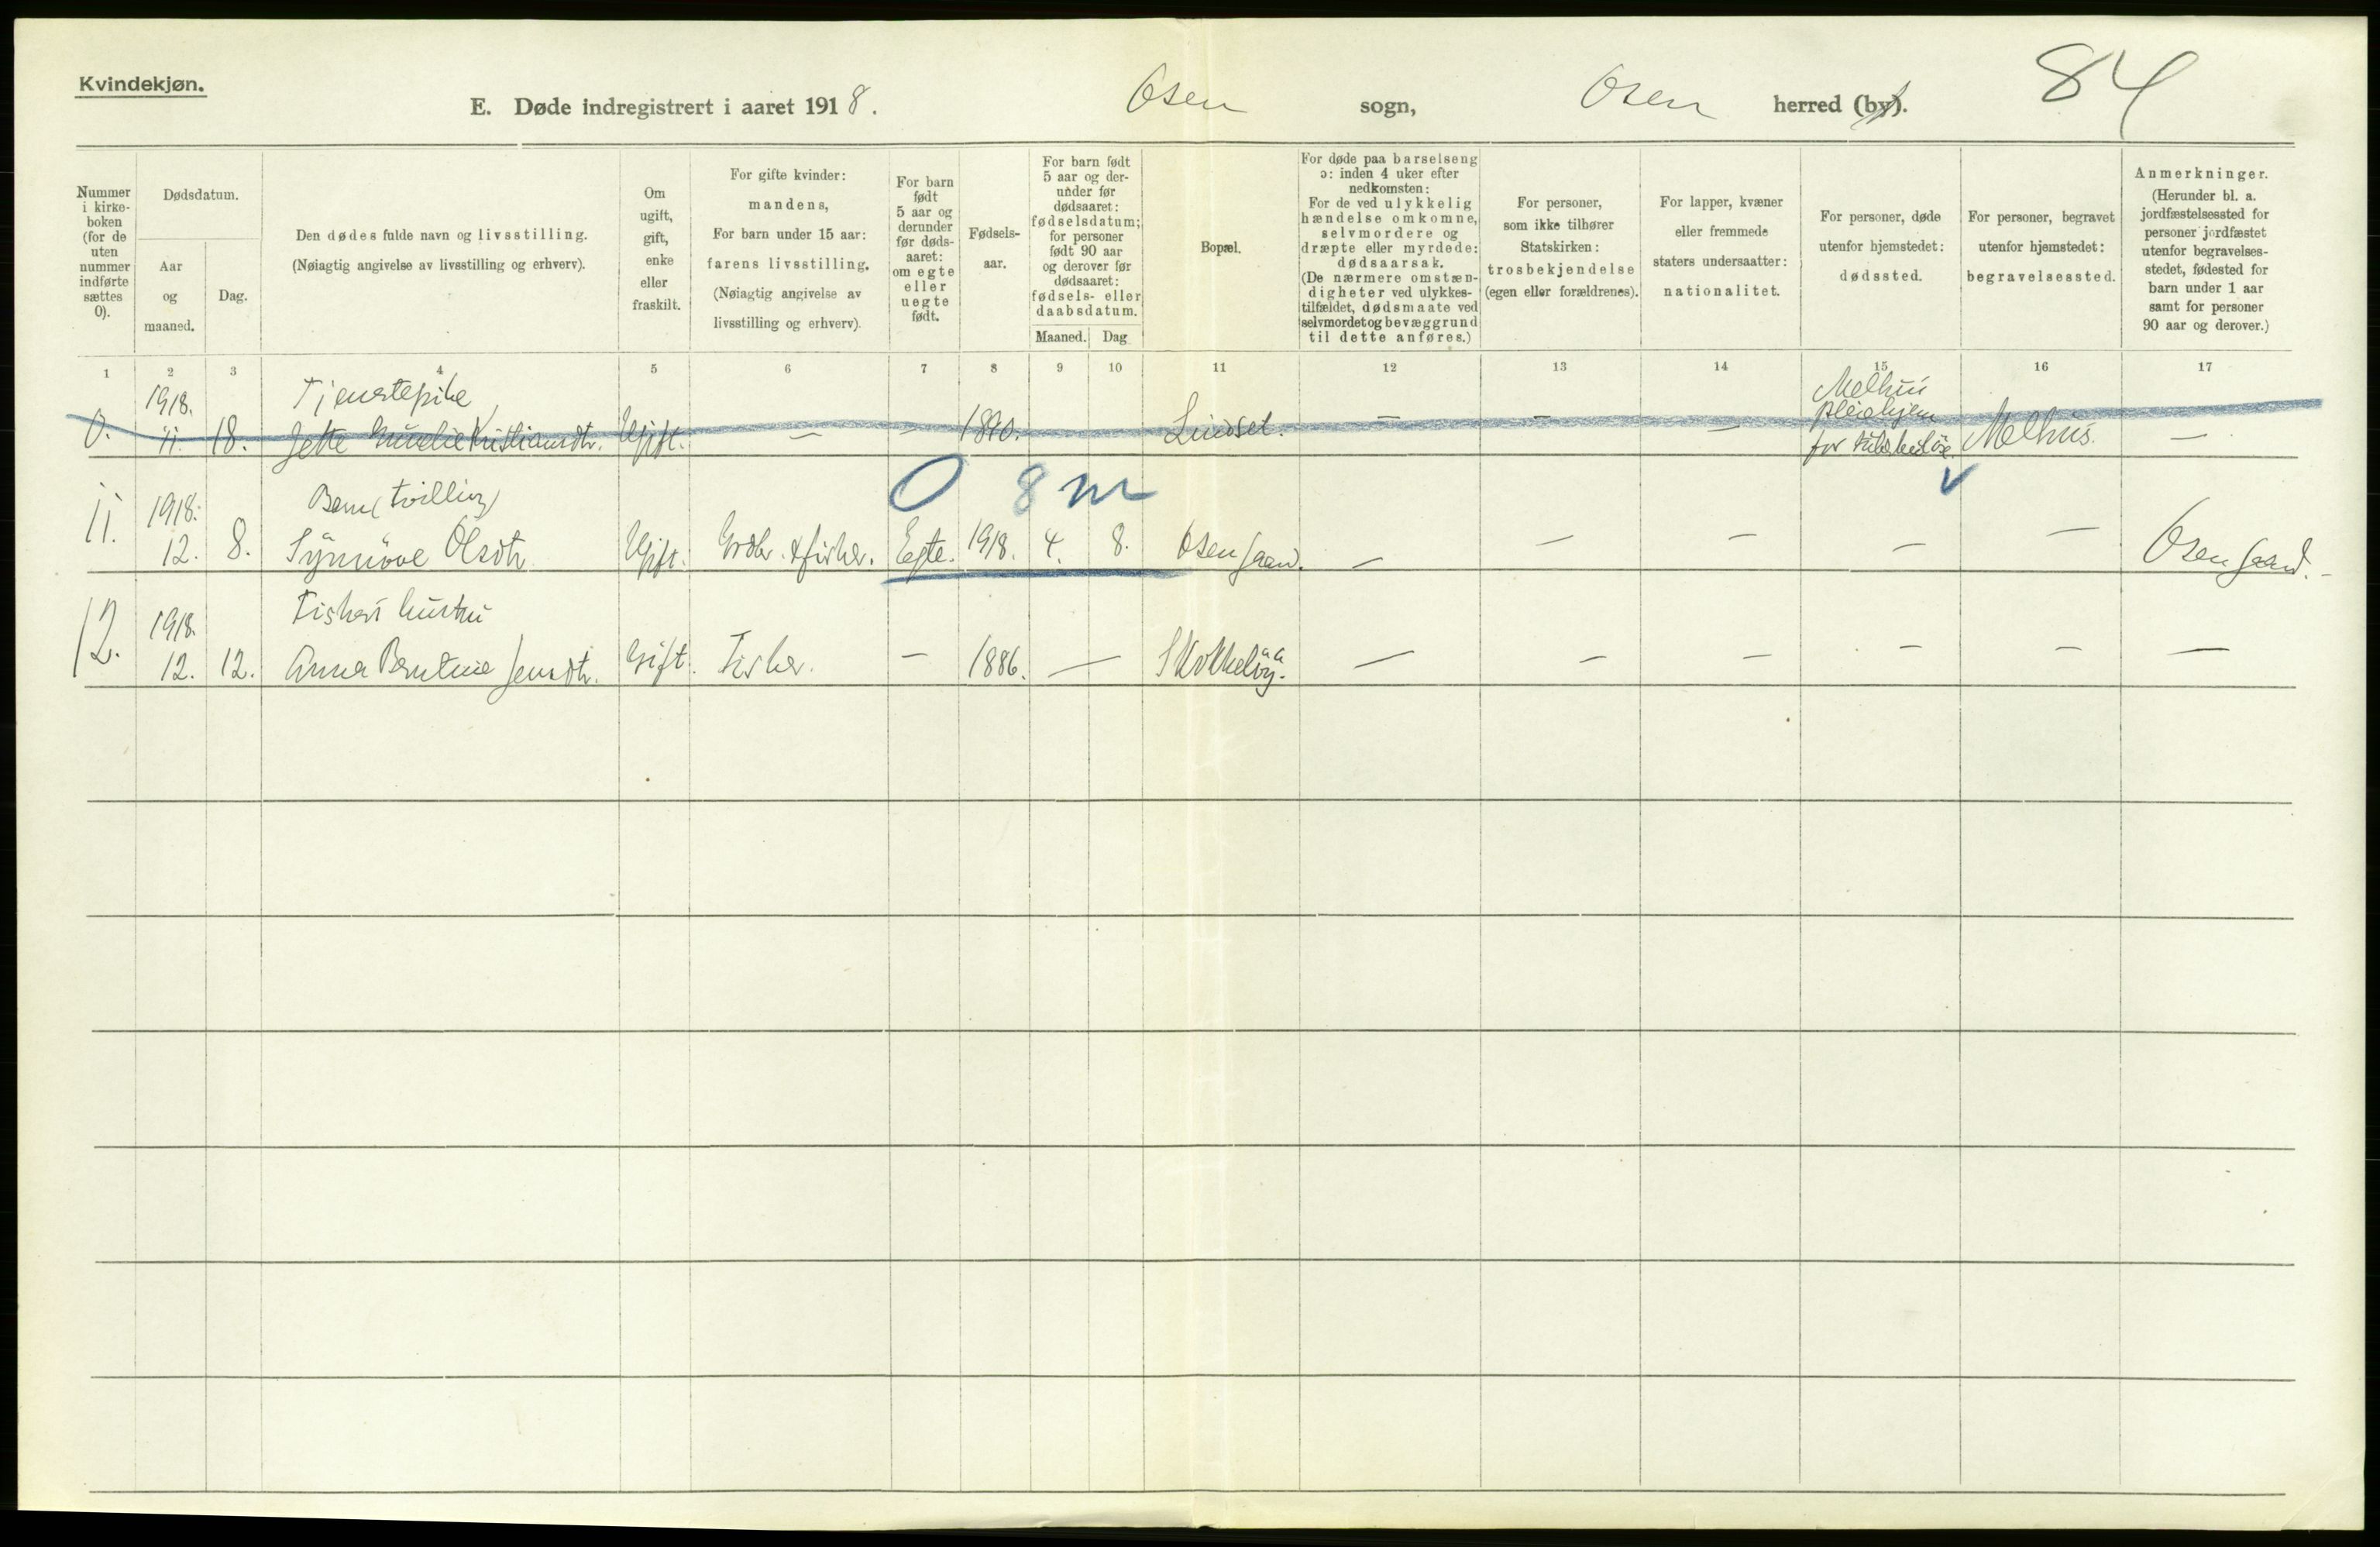 Kvindekjøn.
E. Døde indregistrert i aaret 1918. Osen sogn, Osen herred (by). 84
Nummer i kirke-boken (for de uten nummer indførte sættes 0).
Dødsdatum.
Aar og maaned.
Dag.
Den dødes fulde navn og livsstilling.
(Nøiagtig angivelse av livsstilling og erhverv).
Om ugift, gift, enke eller fraskilt.
For gifte kvinder: mandens,
For barn under 15 aar: farens livsstilling.
(Nøiagtig angivelse av livsstilling og erhverv).
For barn født 5 aar og derunder før døds-aaret: om egte eller uegte født.
Fødsels-aar.
For barn født 5 aar og der-under før dødsaaret: fødselsdatum; for personer født 90 aar og derover før dødsaaret: fødsels- eller daabsdatum.
Maaned. Dag
Bopæl.
For døde paa barselseng ɔ: inden 4 uker efter nedkomsten:
For de ved ulykkelig hændelse omkomne, selvmordere og dræpte eller myrdede: dødsaarsak.
(De nærmere omstæn-digheter ved ulykkes-tilfældet, dødsmaate ved selvmordet og bevæggrund til dette anføres.)
For personer, som ikke tilhører Statskirken: trosbekjendelse (egen eller forældrenes).
For lapper, kvæner eller fremmede staters undersaatter: nationalitet.
For personer, døde utenfor hjemstedet: dødssted.
For personer, begravet utenfor hjemstedet: begravelsessted.
Anmerkninger.
(Herunder bl. a. jordfæstelsessted for personer jordfæstet utenfor begravelses-stedet, fødested for barn under 1 aar samt for personer 90 aar og derover.)
1 2 3 4 5 6 7 8 9 10 11 12 13 14 15 16 17
1918. Tjenestepike Melhus
pleiehjem
0. 11. 18. Jette Kristiansdtr. Ugift. — — 1890. Lindset. — — — for Melhus. —
0 8 m
1918. Barn (tvilling)
11. 12. 8. Synnöve Olsdtr. Ugift. Grdbr. & fisker. Egte. 1918. 4. 8. Osen gaard. — — — — — Osen gaard.
1918. Fiskers hustru
12. 12. 12. Anna Berntine Jensdtr. Gift. Fisker. — 1886. — — — — — — —